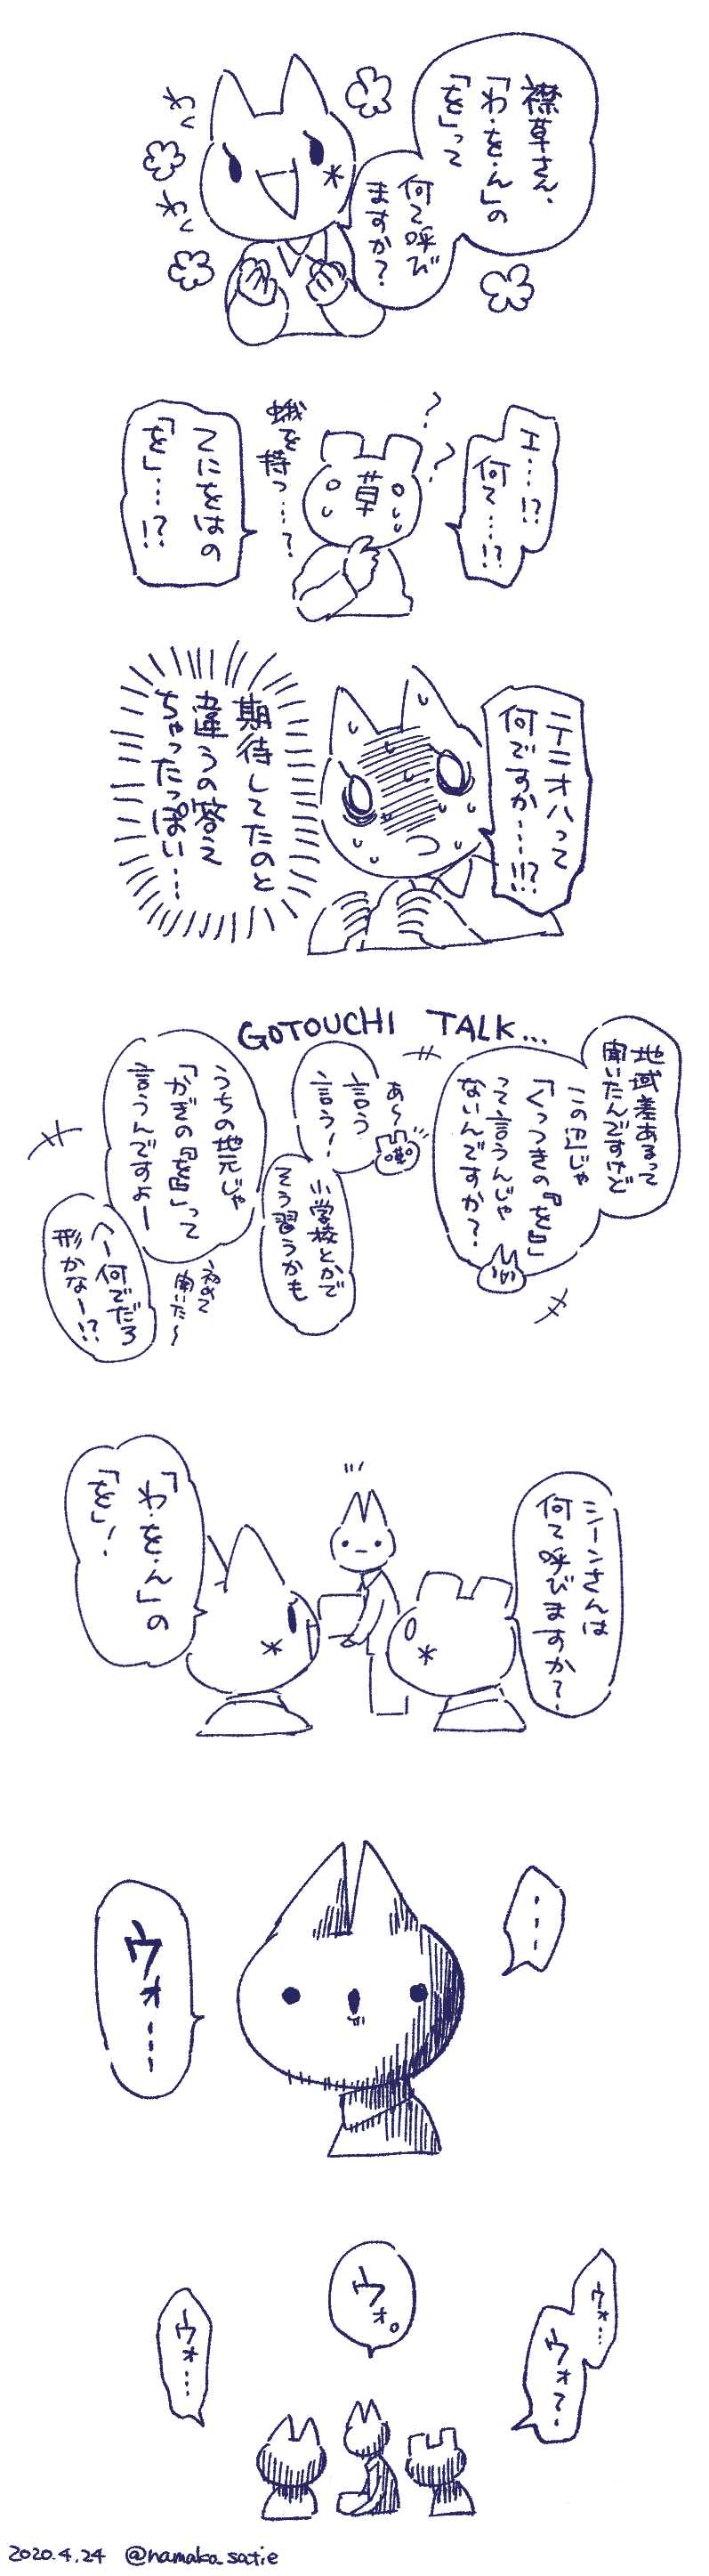 襟草さん、
「わ・を・ん」の
「を」って
何て呼び
ますか？
わく
わく
エ…!?
何て…!?
？
？
草
蛾を
持つ…？
てにをはの
「を」…!?
テニオハって
何ですか…!!?
期待してたのと
違うの答え
ちゃったっぽい…
GOTOUCHI TALK...
地域差あるって
聞いたんですけど
この辺じゃ
「くっつきの『を』」
って言うんじゃ
ないんですか？
あ〜
言う
言う！
小学校とかで
そう習うかも
うちの地元じゃ
「かぎの『を』」って
言うんですよー
初めて
聞いた〜
へー何でだろ
形かなー!?
シーンさんは
何て呼びますか？
「わ・を・ん」の
「を」！
…
ウォ…
ウォ…
ウォ？
ウォ。
ウォ…
2020.4.24 @namaka_satie